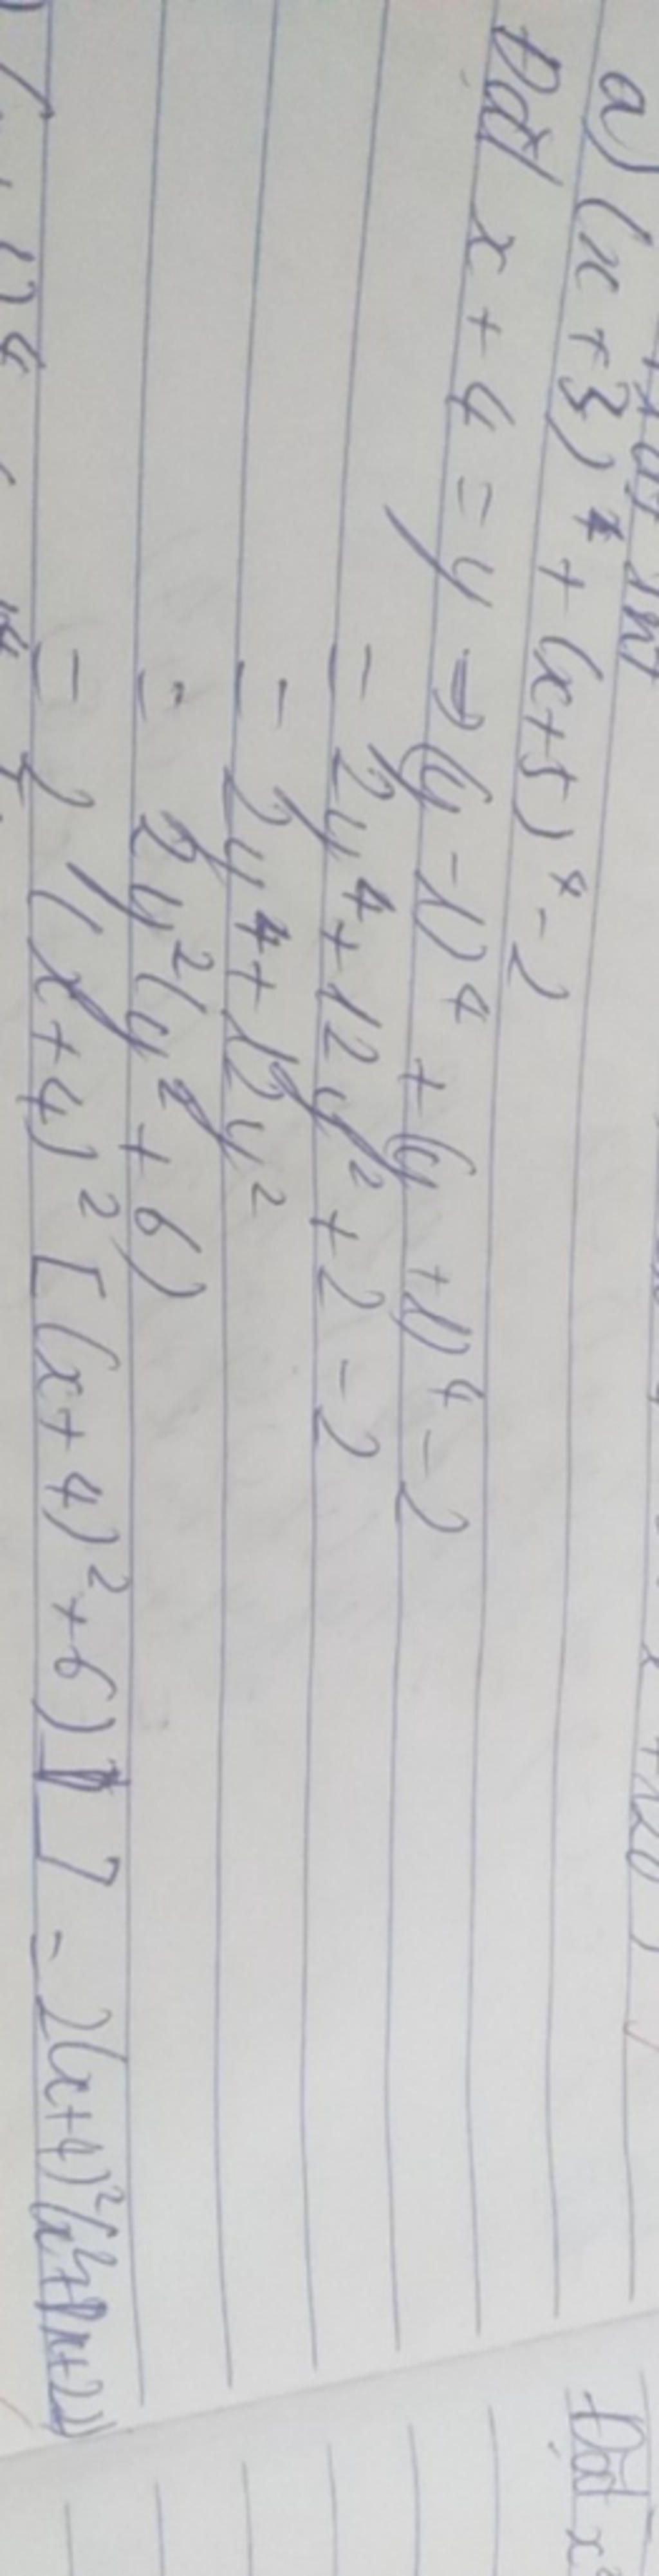 a) (x+3)⁴ + (x+5)⁴ - 2
Đặt x + 4 = y → (y - 1)⁴ + (y + 1)⁴ - 2
= 2y⁴ + 12y² + 2 - 2
= 2y⁴ + 12y²
= 2y²(y² + 6)
= 2(x+4)² [(x+4)² + 6)] = 2(x+4)²(x²+8x+22)
Đặt x²